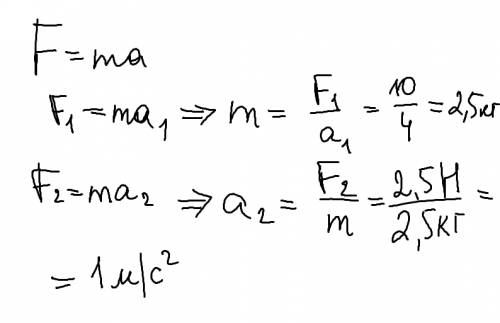 F = ma
F₁ = ma₁ ⇒ m = F₁/a₁ = 10/4 = 2,5кг
F₂ = ma₂ ⇒ a₂ = F₂/m = 2,5Н/2,5кг =
= 1м/с²